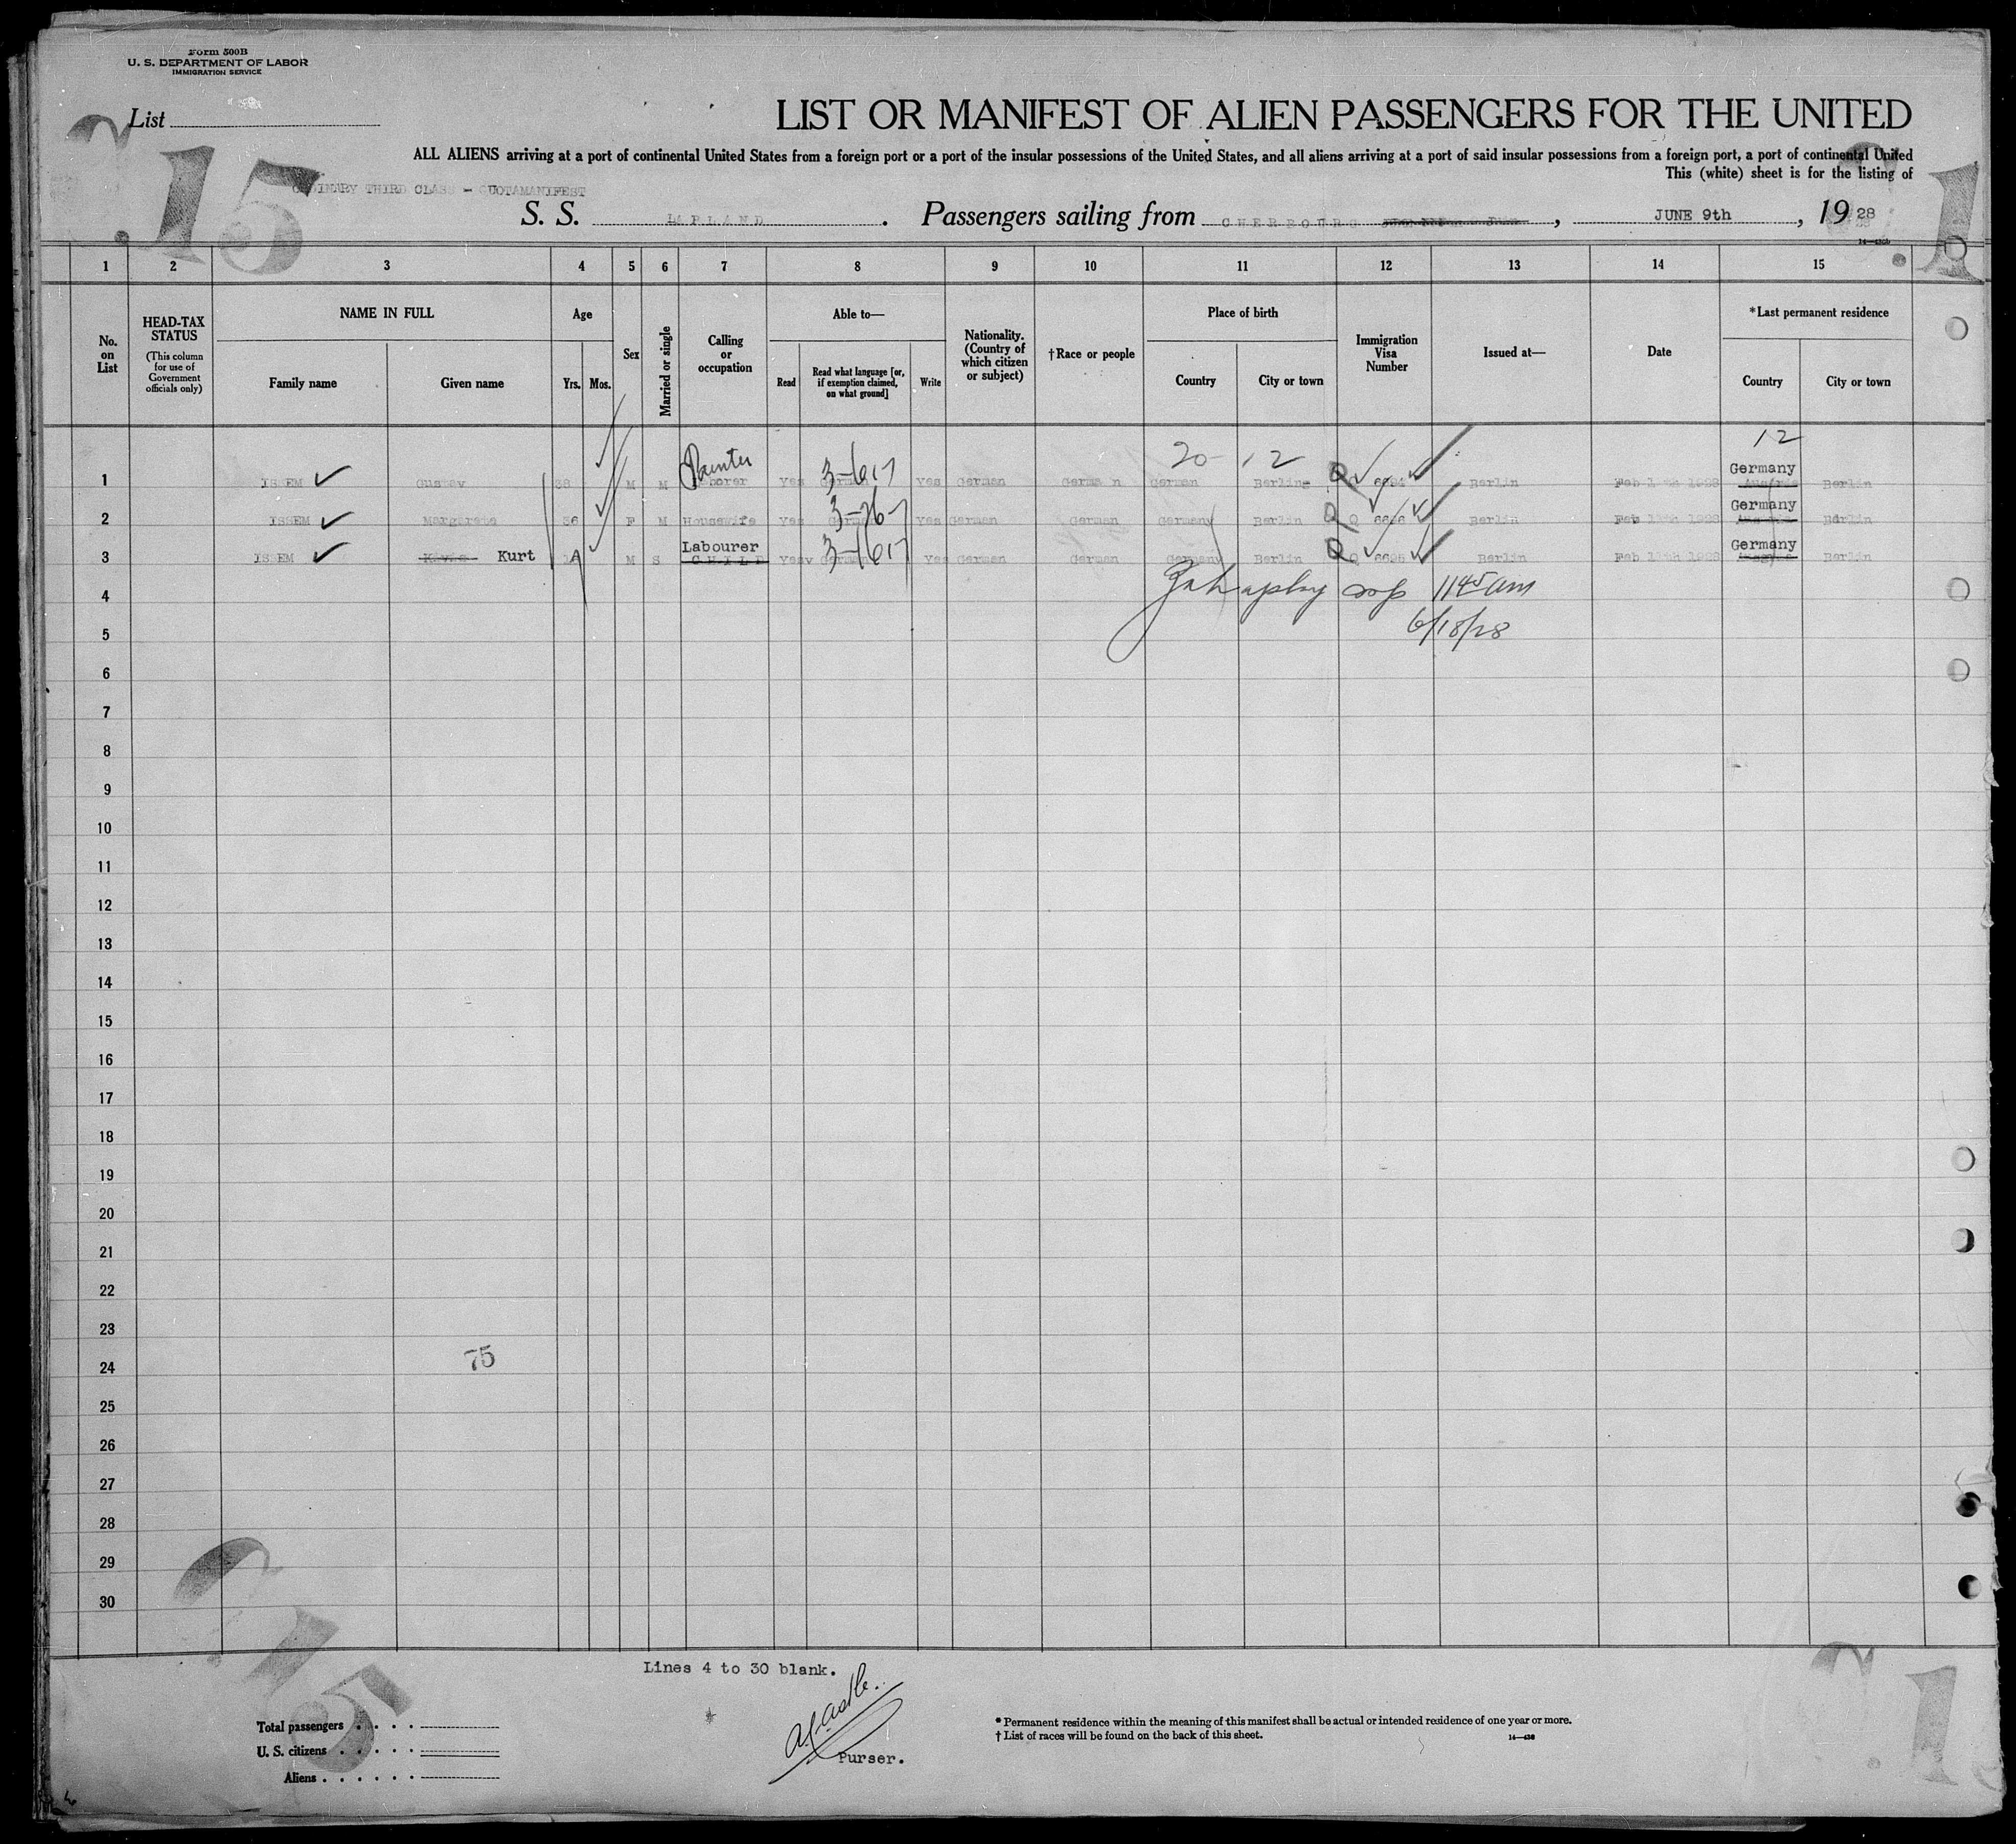 Form 500B
U. S. DEPARTMENT OF LABOR
IMMIGRATION SERVICE
List
15
LIST OR MANIFEST OF ALIEN PASSENGERS FOR THE UNITED
ALL ALIENS arriving at a port of continental United States from a foreign port or a port of the insular possessions of the United States, and all aliens arriving at a port of said insular possessions from a foreign port, a port of continental United
This (white) sheet is for the listing of
ORDINARY THIRD CLASS - QUOTAMANIFEST
S. S. LAPLAND. Passengers sailing from CHERBOURG, JUNE 9th, 1928
14—430b
1 2 3 4 5 6 7 8 9 10 11 12 13 14 15
No. on List
HEAD-TAX STATUS (This column for use of Government officials only)
NAME IN FULL
Family name Given name
Age
Yrs. Mos.
Sex
Married or single
Calling or occupation
Able to—
Read
Read what language [or, if exemption claimed, on what ground]
Write
Nationality. (Country of which citizen or subject)
†Race or people
Place of birth
Country City or town
Immigration Visa Number
Issued at—
Date
*Last permanent residence
Country City or town
20 12 12
Painter Germany
1 ISSEM Gustav 38 M M Laborer Yes German Yes German German German Berling Q Berlin Feb 1928 Berlin
3-617
Germany
2 ISSEM Margarete 36 F M Housewife Yes German Yes German German Germany Berlin Q Berlin Feb 1928 Berlin
Labourer Germany
3 ISSEM Kurt M S CHILD Yes German Yes German German Germany Berlin Q Berlin Feb 1928 Berlin
3-617
4 1145am
5 6/18/28
6
7
8
9
10
11
12
13
14
15
16
17
18
19
20
21
22
23
24 75
25
26
27
28
29
30
Lines 4 to 30 blank.
Purser.
Total passengers
U. S. citizens
Aliens
* Permanent residence within the meaning of this manifest shall be actual or intended residence of one year or more.
† List of races will be found on the back of this sheet.
15